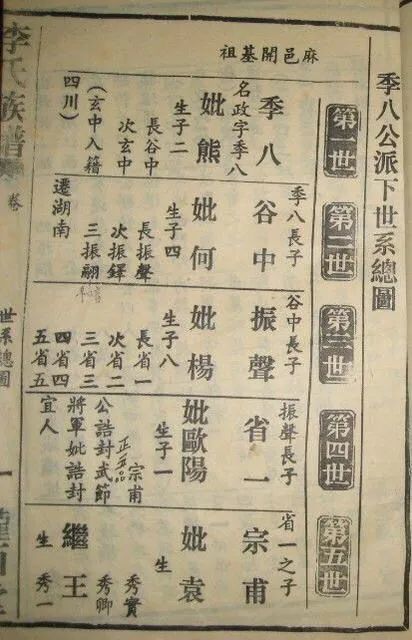 季八公派下世系總圖
麻邑開基祖
第一世
季八
名政字季八
妣熊
生子二
長谷中
次玄中
(玄中入籍
四川)
第二世
季八長子
谷中
妣何
生子四
長振聲
次振鐸
三振翮
遷湖南
第三世
谷中長子
振聲
妣楊
生子八
長省一
次省二
三省三
四省四
五省五
第四世
振聲長子
省一
妣歐陽
生子一
宗甫
正五品
公誥封武節
將軍妣誥封
宜人
第五世
省一之子
宗甫
妣袁
生
秀實
秀卿
繼王
生 秀一
李氏族譜
卷
世系總圖
一